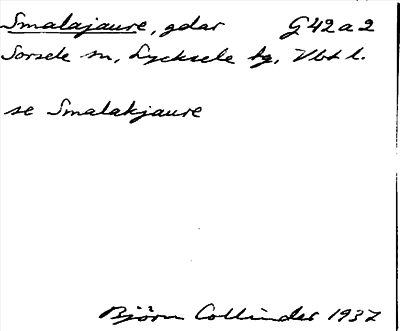 Smalajaure, gdar G42a2
Sorsele sn, Lycksele tg, Vbt l.
se Smalakjaure
Björn Collinder 1937